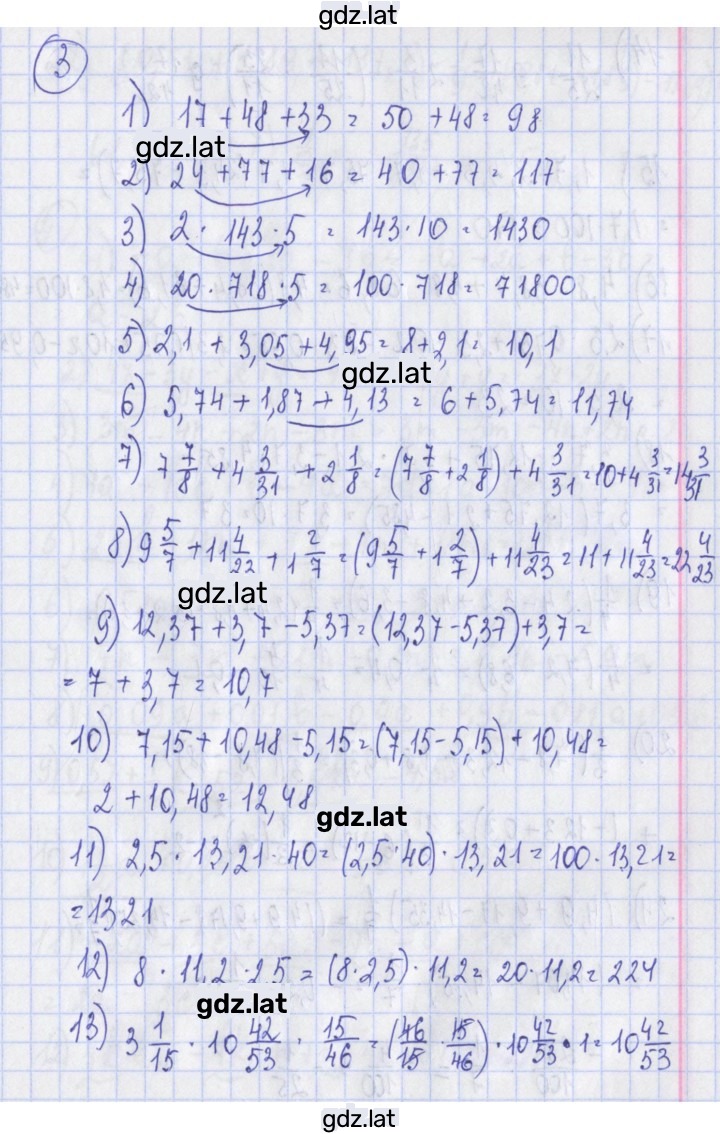 gdz.lat
3
1) 17 + 48 + 33 = 50 + 48 = 98
gdz.lat
2) 24 + 77 + 16 = 40 + 77 = 117
3) 2 · 143 · 5 = 143 · 10 = 1430
4) 20 · 718 · 5 = 100 · 718 = 71800
5) 2,1 + 3,05 + 4,95 = 8 + 2,1 = 10,1
gdz.lat
6) 5,74 + 1,87 + 4,13 = 6 + 5,74 = 11,74
7) 7 7/8 + 4 3/31 + 2 1/8 = (7 7/8 + 2 1/8) + 4 3/31 = 10 + 4 3/31 = 14 3/31
8) 9 5/7 + 11 4/22 + 1 2/7 = (9 5/7 + 1 2/7) + 11 4/23 = 11 + 11 4/23 = 22 4/23
gdz.lat
9) 12,37 + 3,7 - 5,37 = (12,37 - 5,37) + 3,7 =
= 7 + 3,7 = 10,7
10) 7,15 + 10,48 - 5,15 = (7,15 - 5,15) + 10,48 =
2 + 10,48 = 12,48
gdz.lat
11) 2,5 · 13,21 · 40 = (2,5 · 40) · 13,21 = 100 · 13,21 =
= 1321
12) 8 · 11,2 · 2,5 = (8 · 2,5) · 11,2 = 20 · 11,2 = 224
gdz.lat
13) 3 1/15 · 10 42/53 · 15/46 = (46/15 · 15/46) · 10 42/53 · 1 = 10 42/53
gdz.lat